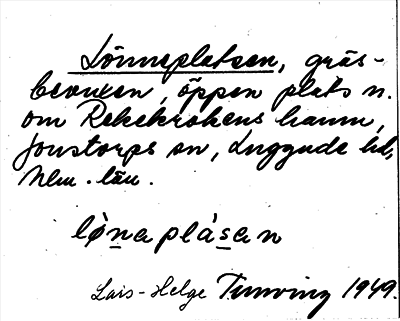 Lönneplatsen, gräs-
bevuxen, öppen plats n.
om Rekekrokens hamn,
Jonstorps sn, Luggude hd,
Mlm. län.
lønaplåsan
Lars-Helge Tunving 1949.